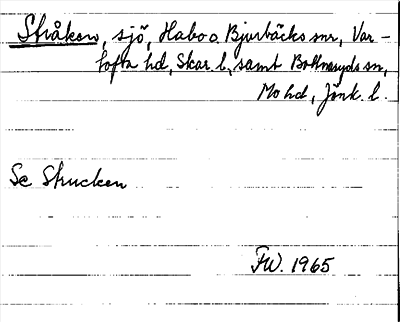 Stråken, sjö, Habo o. Bjurbäcks snr, Var-
tofta hd, Skar. l., samt Bottnaryds sn,
Mo hd, Jönk. l.
Se Strucken
FW. 1965